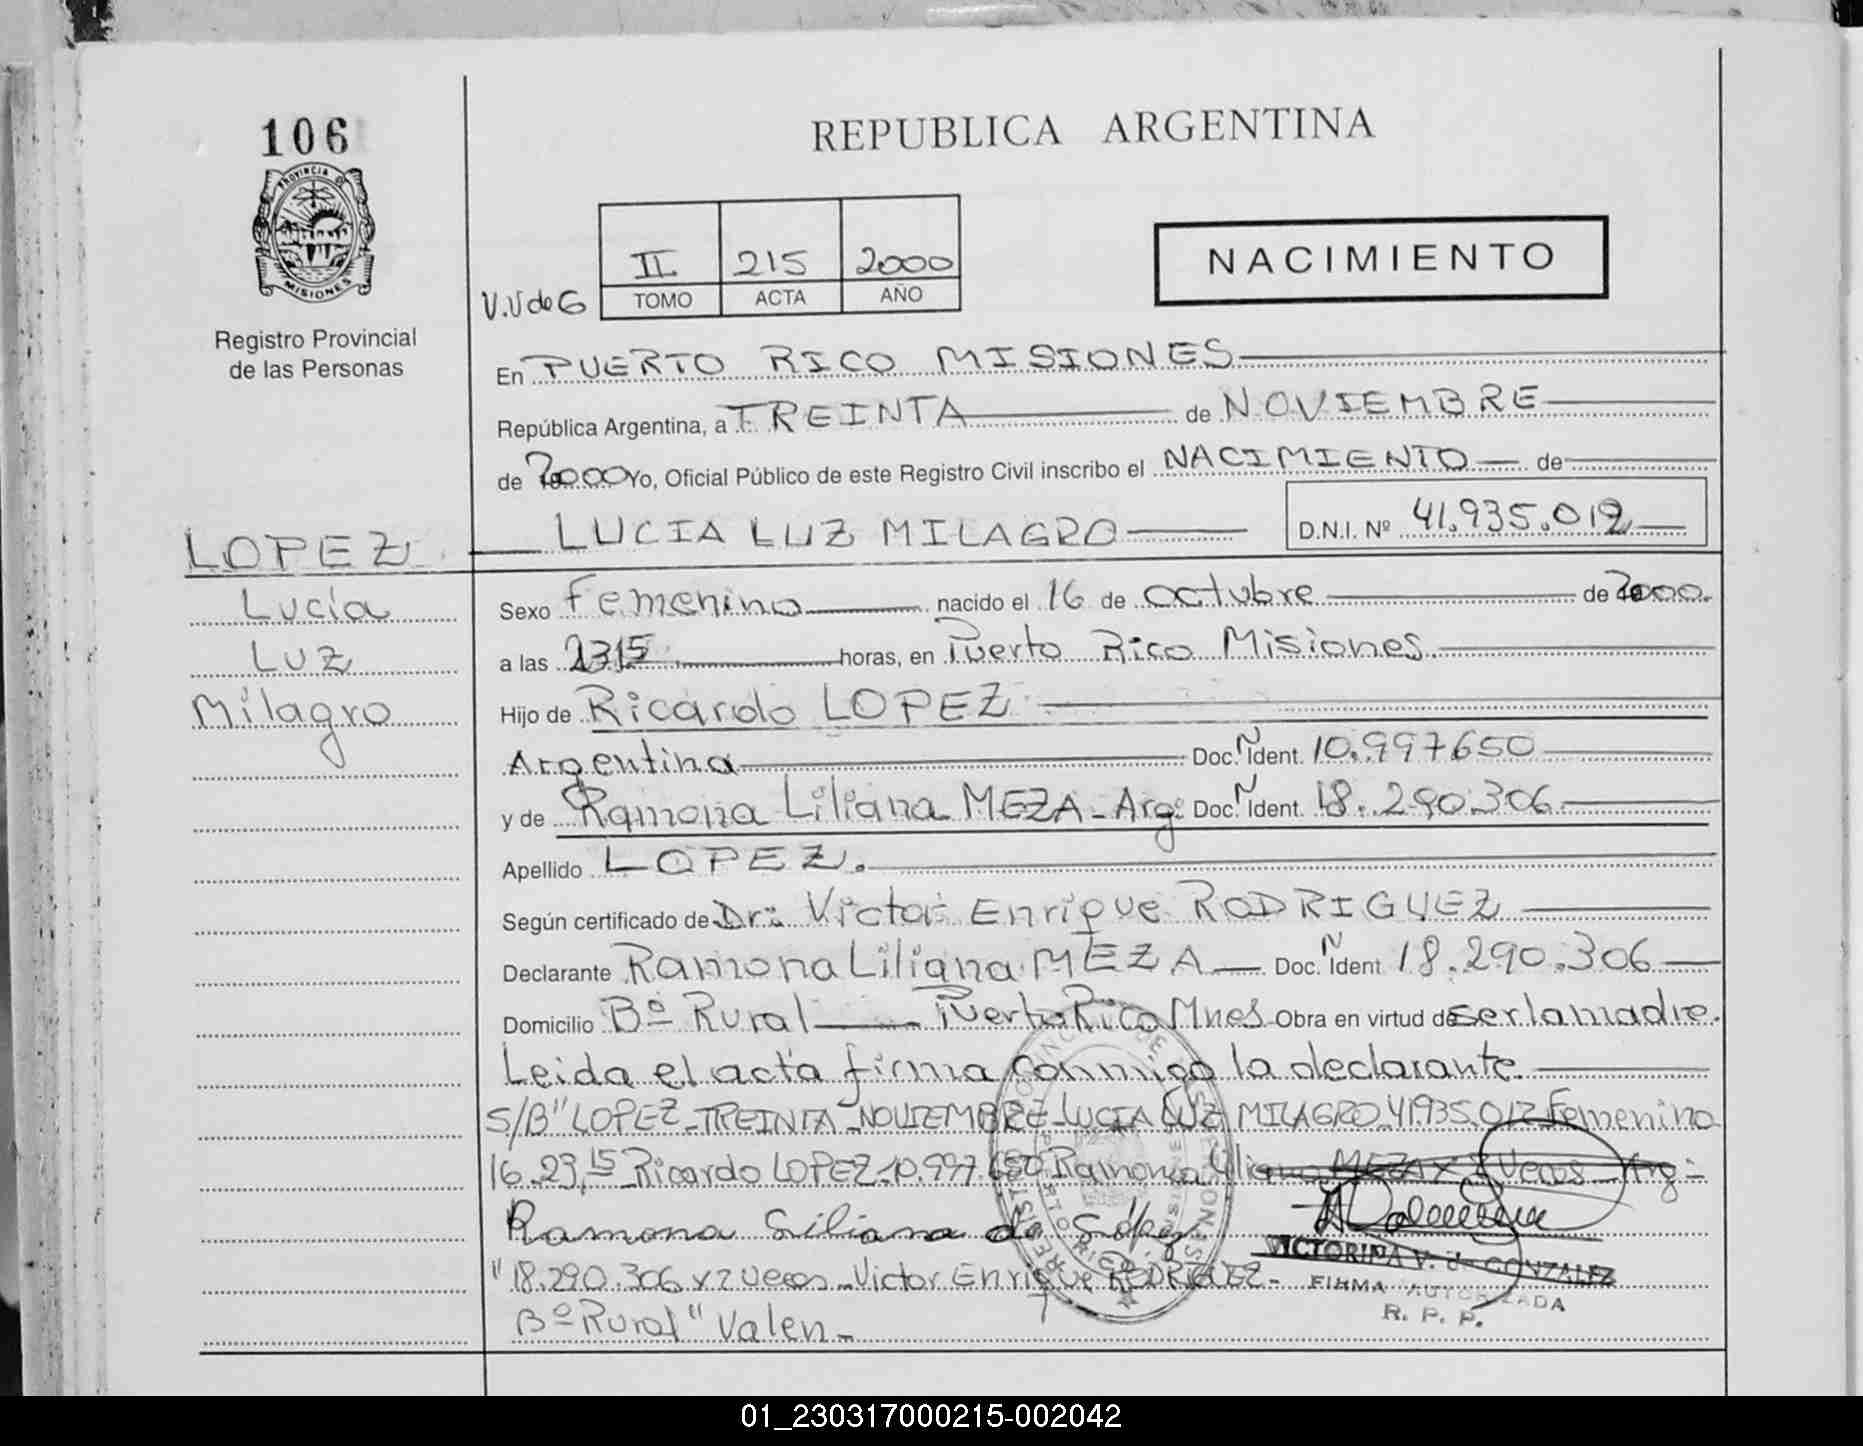 106
REPUBLICA ARGENTINA
PROVINCIA D
MISIONES
Registro Provincial
de las Personas
V.V de G
II 215 2000
TOMO ACTA AÑO
NACIMIENTO
En PUERTO RICO MISIONES
República Argentina, a TREINTA de NOVIEMBRE
de 2000 Yo, Oficial Público de este Registro Civil inscribo el NACIMIENTO de
LUCIA LUZ MILAGRO D.N.I. Nº 41.935.012
LOPEZ
Lucía
Luz
Milagro
Sexo Femenino nacido el 16 de octubre de 2000.
a las 2315 horas, en Puerto Rico Misiones
Hijo de Ricardo LOPEZ
Argentina Doc. N Ident. 10.997650
y de Ramona Liliana MEZA - Arg: Doc. N Ident. 18.290.306
Apellido LOPEZ.
Según certificado de Dr: Victor Enrique RODRIGUEZ
Declarante Ramona Liliana MEZA Doc. N Ident 18.290.306
Domicilio Bº Rural Puerto Rico Mnes Obra en virtud de ser la madre.
Leida el acta firma conmigo la declarante.
S/B" LOPEZ - TREINTA - NOVIEMBRE - LUCIA LUZ MILAGRO - 41935.012 Femenino
16.23,15 Ricardo LOPEZ - 10.997.650 Ramona Liliana MEZA x 2 veces - Arg -
Ramona Liliana de
VICTORINA V. de GONZALEZ
FIRMA AUTORIZADA
R. P. P.
"18.290.306 x 2 veces - Victor Enrique RODRIGUEZ -
Bº Rural" Valen -
01_230317000215-002042